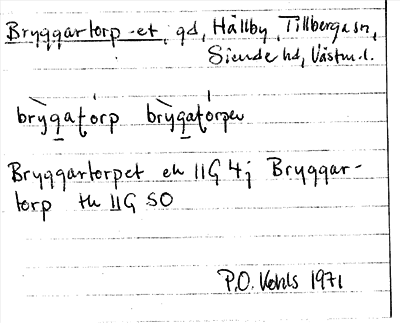 Bryggartorp -et, gd, Hällby, Tillberga sn,
Siende hd, Västm. l.
brỳgatórp brỳgatórpeṛ
Bryggartorpet ek 11G 4j Bryggar-
torp tk 11G SO
P.O. Kohls 1971